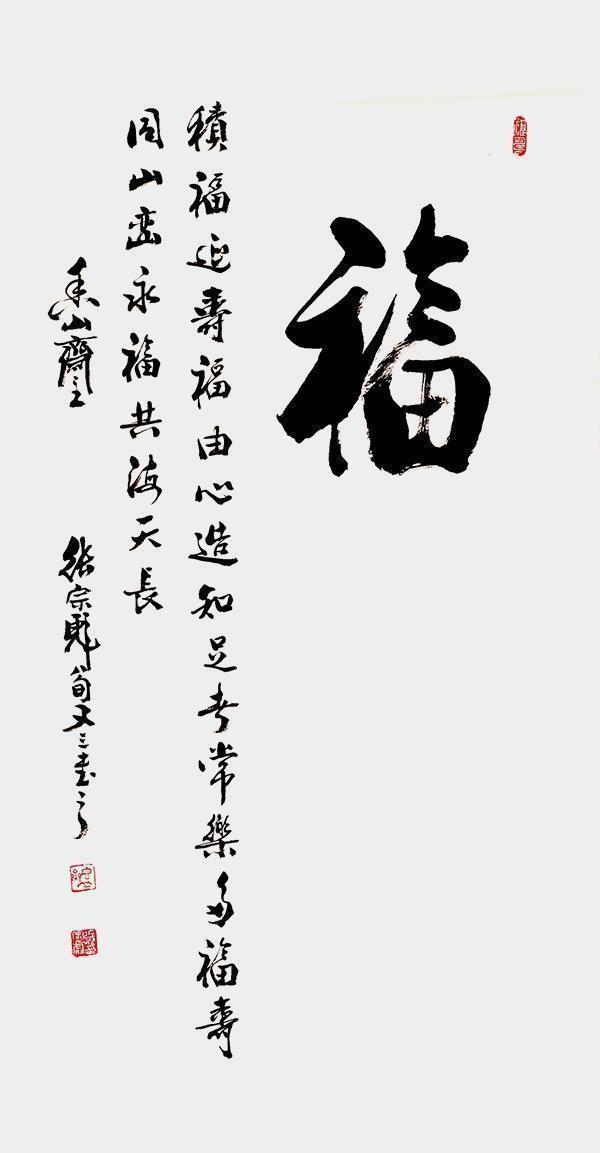 福
積福延壽福由心造知足者常樂多福壽
同山巒永福共海天長
山齋主
張宗彪又三書